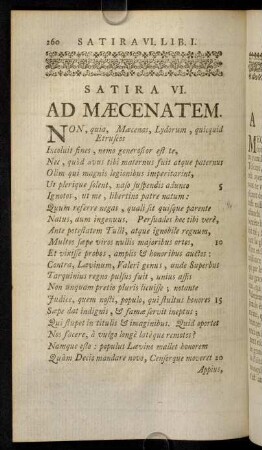 260 SATIRA VI. LIB. I.
SATIRA VI.
AD MÆCENATEM.
NON, quia, Mæcenas, Lydorum, quicquid
Etruscos
Incoluit fines, nemo generosior est te,
Nec, quòd avus tibi maternus fuit atque paternus
Olim qui magnis legionibus imperitarint,
Ut plerique solent, naso suspendis adunco 5
Ignotos, ut me, libertino patre natum:
Quum referre negas, quali sit quisque parente
Natus, dum ingenuus. Persuades hoc tibi verè,
Ante potestatem Tullî, atque ignobile regnum,
Multos sæpe viros nullis majoribus ortos, 10
Et vixisse probos, amplis & honoribus auctos:
Contra, Lævinum, Valerî genus, unde Superbus
Tarquinius regno pulsus fuit, unius assis
Non unquam pretio pluris licuisse; notante
Judice, quem nosti, populo, qui stultus honores 15
Sæpe dat indignis, & famæ servit ineptus;
Qui stupet in titulis & imaginibus. Quid oportet
Nos facere, à vulgo longè latèque remotos?
Namque esto: populus Lævino mallet honorem
Quàm Decio mandare novo, Censorque moveret 20
Appius,